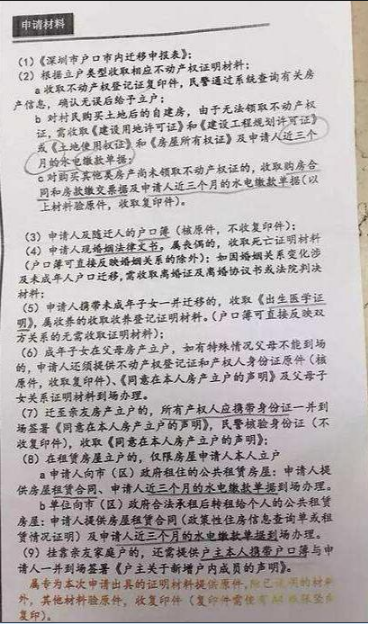 申请材料
(1)《深圳市户口市内迁移申报表》;
(2)根据立户类型收取相应不动产权证明材料:
a收取不动产权登记证复印件,民警通过系统查询有关房
产信息,确认无误后给予立户;
b对村民购买土地后的自建房,由于无法领取不动产权
证,需收取《建设用地许可证》和《建设工程规划许可证》
或《土地使用权证》和《房屋所有权证》及申请人近三个
月的水电缴款单据;
c对购买其他类房产尚未领取不动产权证的,收取购房合
同和房款缴交票据及申请人近三个月的水电缴款单据(以
上材料验原件,收取复印件)。
(3)申请人及随迁人的户口簿(核原件,不收复印件);
(4)申请人现婚姻法律文书。属丧偶的,收取死亡证明材料
(户口簿可直接反映婚姻关系的除外);如因婚姻关系变化涉
及未成年人户口迁移,需收取离婚证及离婚协议书或法院判决
材料;
(5)申请人携带未成年子女一并迁移的,收取《出生医学证
明》,属收养的收取收养登记证明材料。(户口簿可直接反映双
方关系的无需收取证明材料);
(6)成年子女在父母房产立户,如有特殊情况父母不能到场
的,申请人还须提供不动产权登记证和产权人身份证原件(核
原件,收取复印件)、《同意在本人房产立户的声明》及父母子
女关系证明材料到场办理。
(7)迁至亲友房产立户的,所有产权人应携带身份证一并到
场签署《同意在本人房产立户的声明》,民警核验身份证(不
收复印件),收取《同意在本人房产立户的声明》;
(8)在租赁房屋立户的,仅限房屋申请人本人立户
a申请人向市(区)政府租住的公共租赁房屋:申请人提
供房屋租赁合同、申请人近三个月的水电缴款单据到场办理。
b单位向市(区)政府合法承租后转租给个人的公共租赁
房屋:申请人提供房屋租赁合同(政策性住房信息查询单或租
赁情况证明)及申请人近三个月的水电缴款单据到场办理。
(9)挂靠亲友家庭户的,还需提供户主本人携带户口簿与申
请人一并到场签署《户主关于新增户内成员的声明》。
属专为本次申请出具的证明材料提供原件,除已说明的材料
外,其他材料验原件,收复印件(复印件需使用A4纸张竖向
复印)。